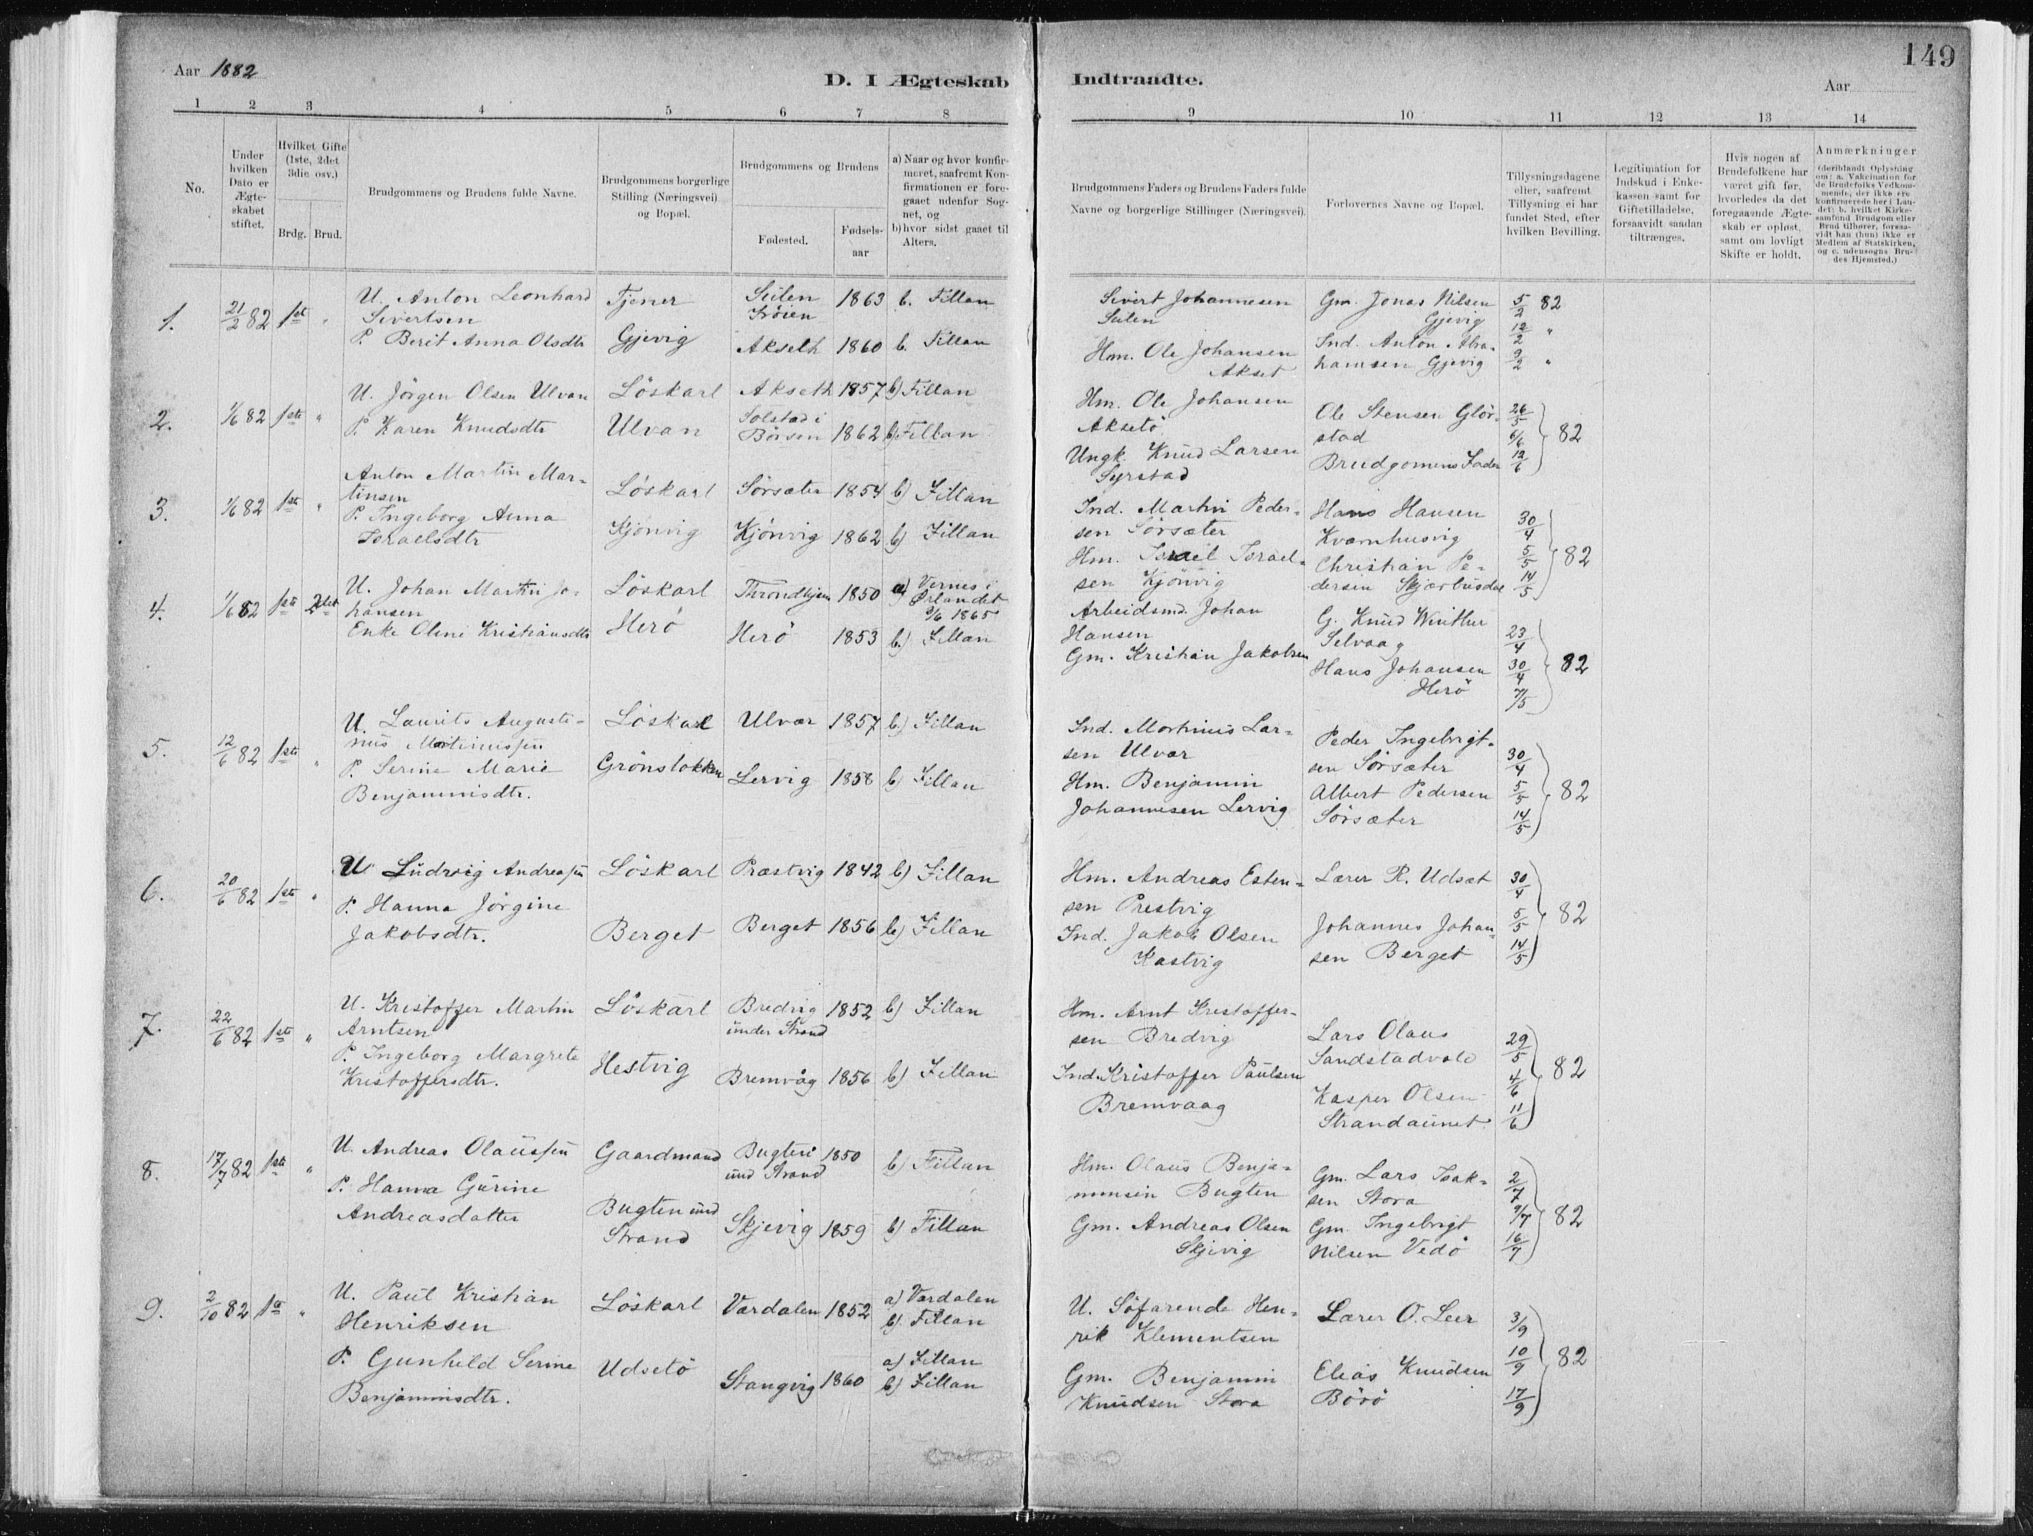 149
Aar 1882
D. I Ægteskab Indtraadte.
Aar
1 2 3 4 5 6 7 8 9 10 11 12 13 14
No.
Under hvilken Dato er Ægteskabet stiftet.
Hvilket Gifte (1ste, 2det 3die osv.)
Brdg. Brud.
Brudgommens og Brudens fulde Navne.
Brudgommens borgerlige Stilling (Næringsvei) og Bopæl.
Brudgommens og Brudens
Fødested.
Fødselsaar
a) Naar og hvor konfirmeret, saafremt Konfirmationen er foregaaet udenfor Sognet, og
b) hvor sidst gaaet til Alters.
Brudgommens Faders og Brudens Faders fulde Navne og borgerlige Stillinger (Næringsvei).
Forlovernes Navne og Bopæl.
Tillysningsdagene eller, saafremt Tillysning ei har fundet Sted, efter hvilken Bevilling.
Legitimation for Indskud i Enkekassen samt for Giftetilladelse, forsaavidt saadan tiltrænges.
Hvis nogen af Brudefolkene har været gift før, hvorledes da det foregaaende Ægteskab er opløst, samt om lovligt Skifte er holdt.
Anmærkninger (deriblandt Oplysning om: a. Vakcination for de Brudefolks Vedkommende, der ikke ere konfirmerede her i Landet; b. hvilket Kirkesamfund Brudgom eller Brud tilhører, forsaavidt han (hun) ikke er Medlem af Statskirken, og c. udensogns Brudes Hjemsted.)
1. 21/2 82 1st "
U. Anton Leonhard
Sivertsen
P. Berit Anna Olsdtr
Tjener
Gjevig
Sulen
Frösen 1863 b. Fillan
Akseth 1860 b. Fillan
Sivert Johannesen
Sulen
Hm. Ole Johansen
Akset
Gm. Jonas Nilsen
Gjevig
Ind. Anton Abra-
hamsen Gjevig
5/2 82
12/2 "
9/2 "
2. 1/6 82 1ste "
U. Jörgen Olsen Ulvan
P. Karen Knudsdtr
Löskarl
Ulvan
Akseth 1857 b) Fillan
Solstad i
Börsen 1862 b) Fillan
Hm. Ole Johansen
Aksetö
Ungk. Knud Larsen
Syrstad
Ole Stensen Glör-
stad
Brudgomens Fader
26/5
6/6
12/6 82
3. 1/6 82 1ste "
Anton Martin Mar-
tinsen
P. Ingeborg Anna
Israelsdtr
Löskarl
Kjönvig
Sörsæter 1854 b) Fillan
Kjönvig 1862 b) Fillan
Ind. Martin Peder-
sen Sörsæter
Hm. Israel Israel-
sen Kjönvig
Hans Hansen
Kvernhusvig
Christian Pe-
dersen
30/4
5/5
14/5 82
4. 1/6 82 1ste 2det
U. Johan Martin Jo-
hansen
Enke Oline Kristiansdtr
Löskarl
Herö
Throndhjem 1850 a) Vernes i
Ørlandet
9/6 1865
Herö 1853 b.) Fillan
Arbeidsmd. Johan
Hansen
Gm. Kristian Jakobsen
G. Knud Winther
Selvaag
Hans Johansen
Herö
23/4
30/4
7/5 82
5. 12/6 82 1ste "
U. Laurits Augusti-
nus Martinussen
P. Serine Marie
Benjaminsdtr.
Löskarl
Grönslokken
Ulvær 1857 b.) Fillan
Lervig 1858 b) Fillan
Ind. Mortinus Lar-
sen Ulvær
Hm. Benjamin
Johannesen Lervig
Peder Ingebrigt-
sen Sörsæter
Albert Pedersen
Sörsæter
30/4
5/5
14/5 82
6. 20/6 82 1ste "
U. Ludvig Andreassen
P. Hanna Jörgine
Jakobsdtr.
Löskarl
Berget
Præstvig 1842 b) Fillan
Berget 1856 b) Fillan
Hm. Andreas Esten-
sen Prestvig
Ind. Jakob Olsen
Kastvig
Lærer R. Udsæt
Johannes Johan-
sen Berget
30/4
5/5
14/5 82
7. 22/6 82 1ste "
U. Kristoffer Martin
Arntsen
P. Ingeborg Margrete
Kristoffersdtr.
Löskarl
Hestvig
Bredvig 1852 b) Fillan
under Strand
Bremvåg 1856 b) Fillan
Hm. Arnt Kristoffer-
sen Bredvig
Ind. Kristoffer Paulsen
Bremvaag
Lars Olaus
Sandstadvold
Kasper Olsen
Strandaunet
29/5
4/6
11/6 82
8. 17/7 82 1ste "
U. Andreas Olaussen
P. Hanna Gurine
Andreasdatter
Gaardmand
Bugten und
Strand
Bugten 1850
und Strand b) Fillan
Skjevig 1859 b) Fillan
Hm. Olaus Benja-
minsen Bugten
Gm. Andreas Olsen
Skjevig
Gm. Lars Isak-
sen Stora
Gm. Ingebrigt
Nilsen Vedö
2/7
9/7
16/7 82
9. 2/10 82 "
U. Paul Kristian
Henriksen
P. Gunhild Serine
Benjaminsdtr.
Löskarl
Udsetö
Værdalen 1852 a) Værdalen
b) Fillan
Stangvig 1860 a) Fillan
b) Fillan
U. Söfarende Hen-
rik Klementsen
Gm. Benjamin
Knudsen Stora
Lærer O. Leer
Elias Knudsen
Börö
3/9
10/9
17/9 82